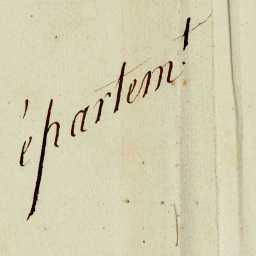 épartem.t